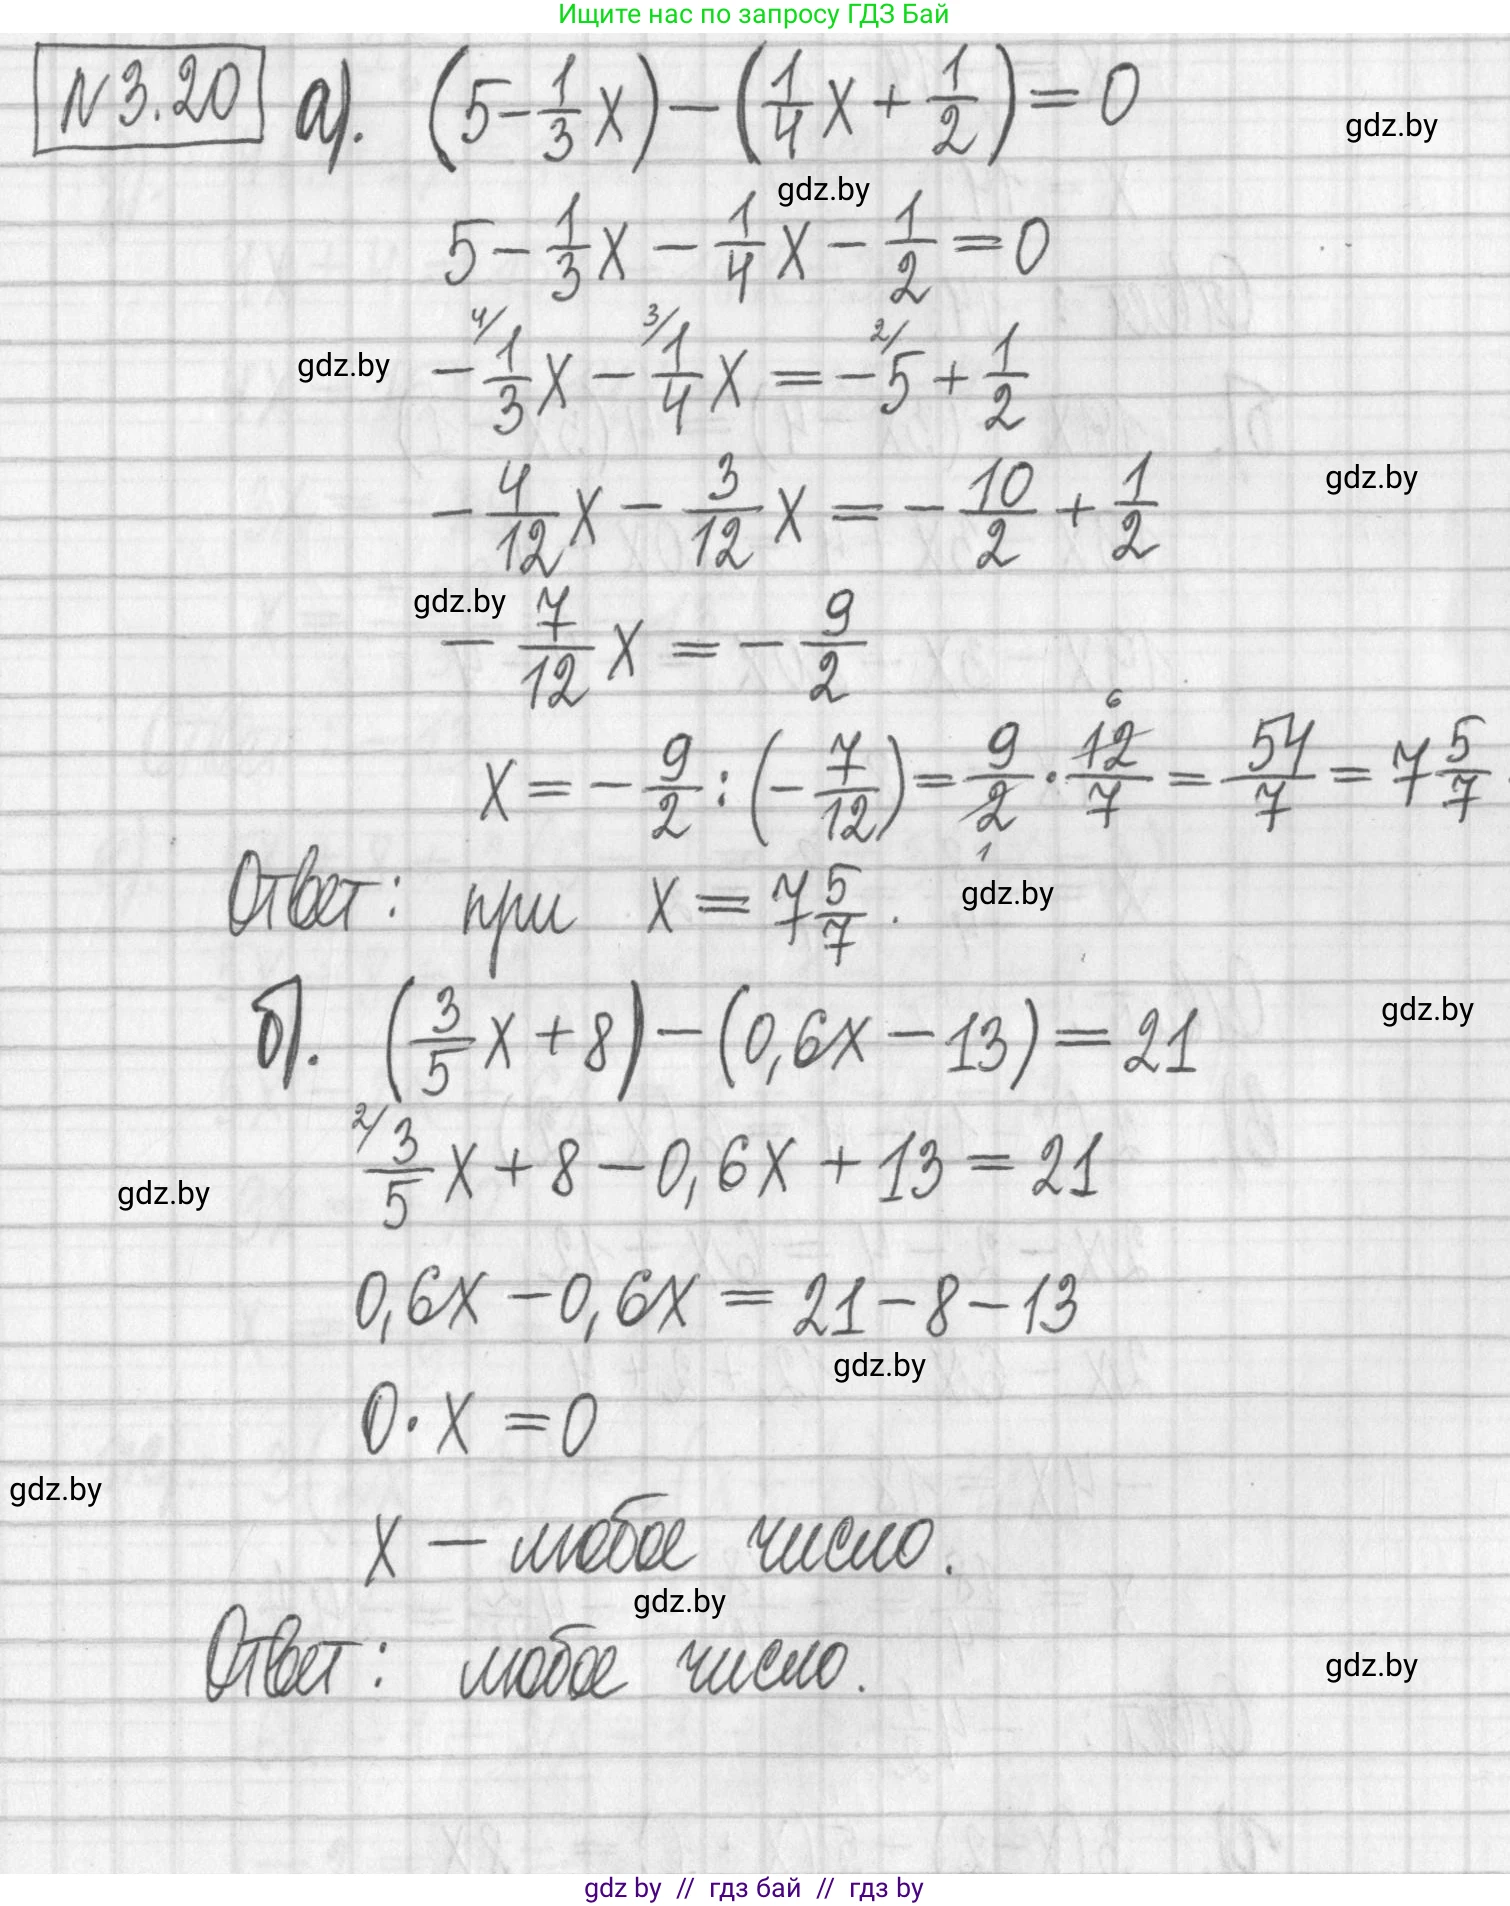 Ищите нас по запросу ГДЗ Бай
№3.20 а). (5 - 1/3 x) - (1/4 x + 1/2) = 0
gdz.by
gdz.by
5 - 1/3 x - 1/4 x - 1/2 = 0
gdz.by
- ⁴/ 1/3 x - ³/ 1/4 x = - ²/ 5 + 1/2
- 4/12 x - 3/12 x = - 10/2 + 1/2
gdz.by
gdz.by
- 7/12 x = - 9/2
x = - 9/2 : (- 7/12) = 9/2 · 12/7 = 54/7 = 7 5/7
6
1
Ответ: при x = 7 5/7.
gdz.by
б). (3/5 x + 8) - (0,6x - 13) = 21
gdz.by
²/ 3/5 x + 8 - 0,6x + 13 = 21
gdz.by
0,6x - 0,6x = 21 - 8 - 13
gdz.by
0 · x = 0
gdz.by
x - любое число.
gdz.by
Ответ: любое число.
gdz.by
gdz by // гдз бай // гдз by